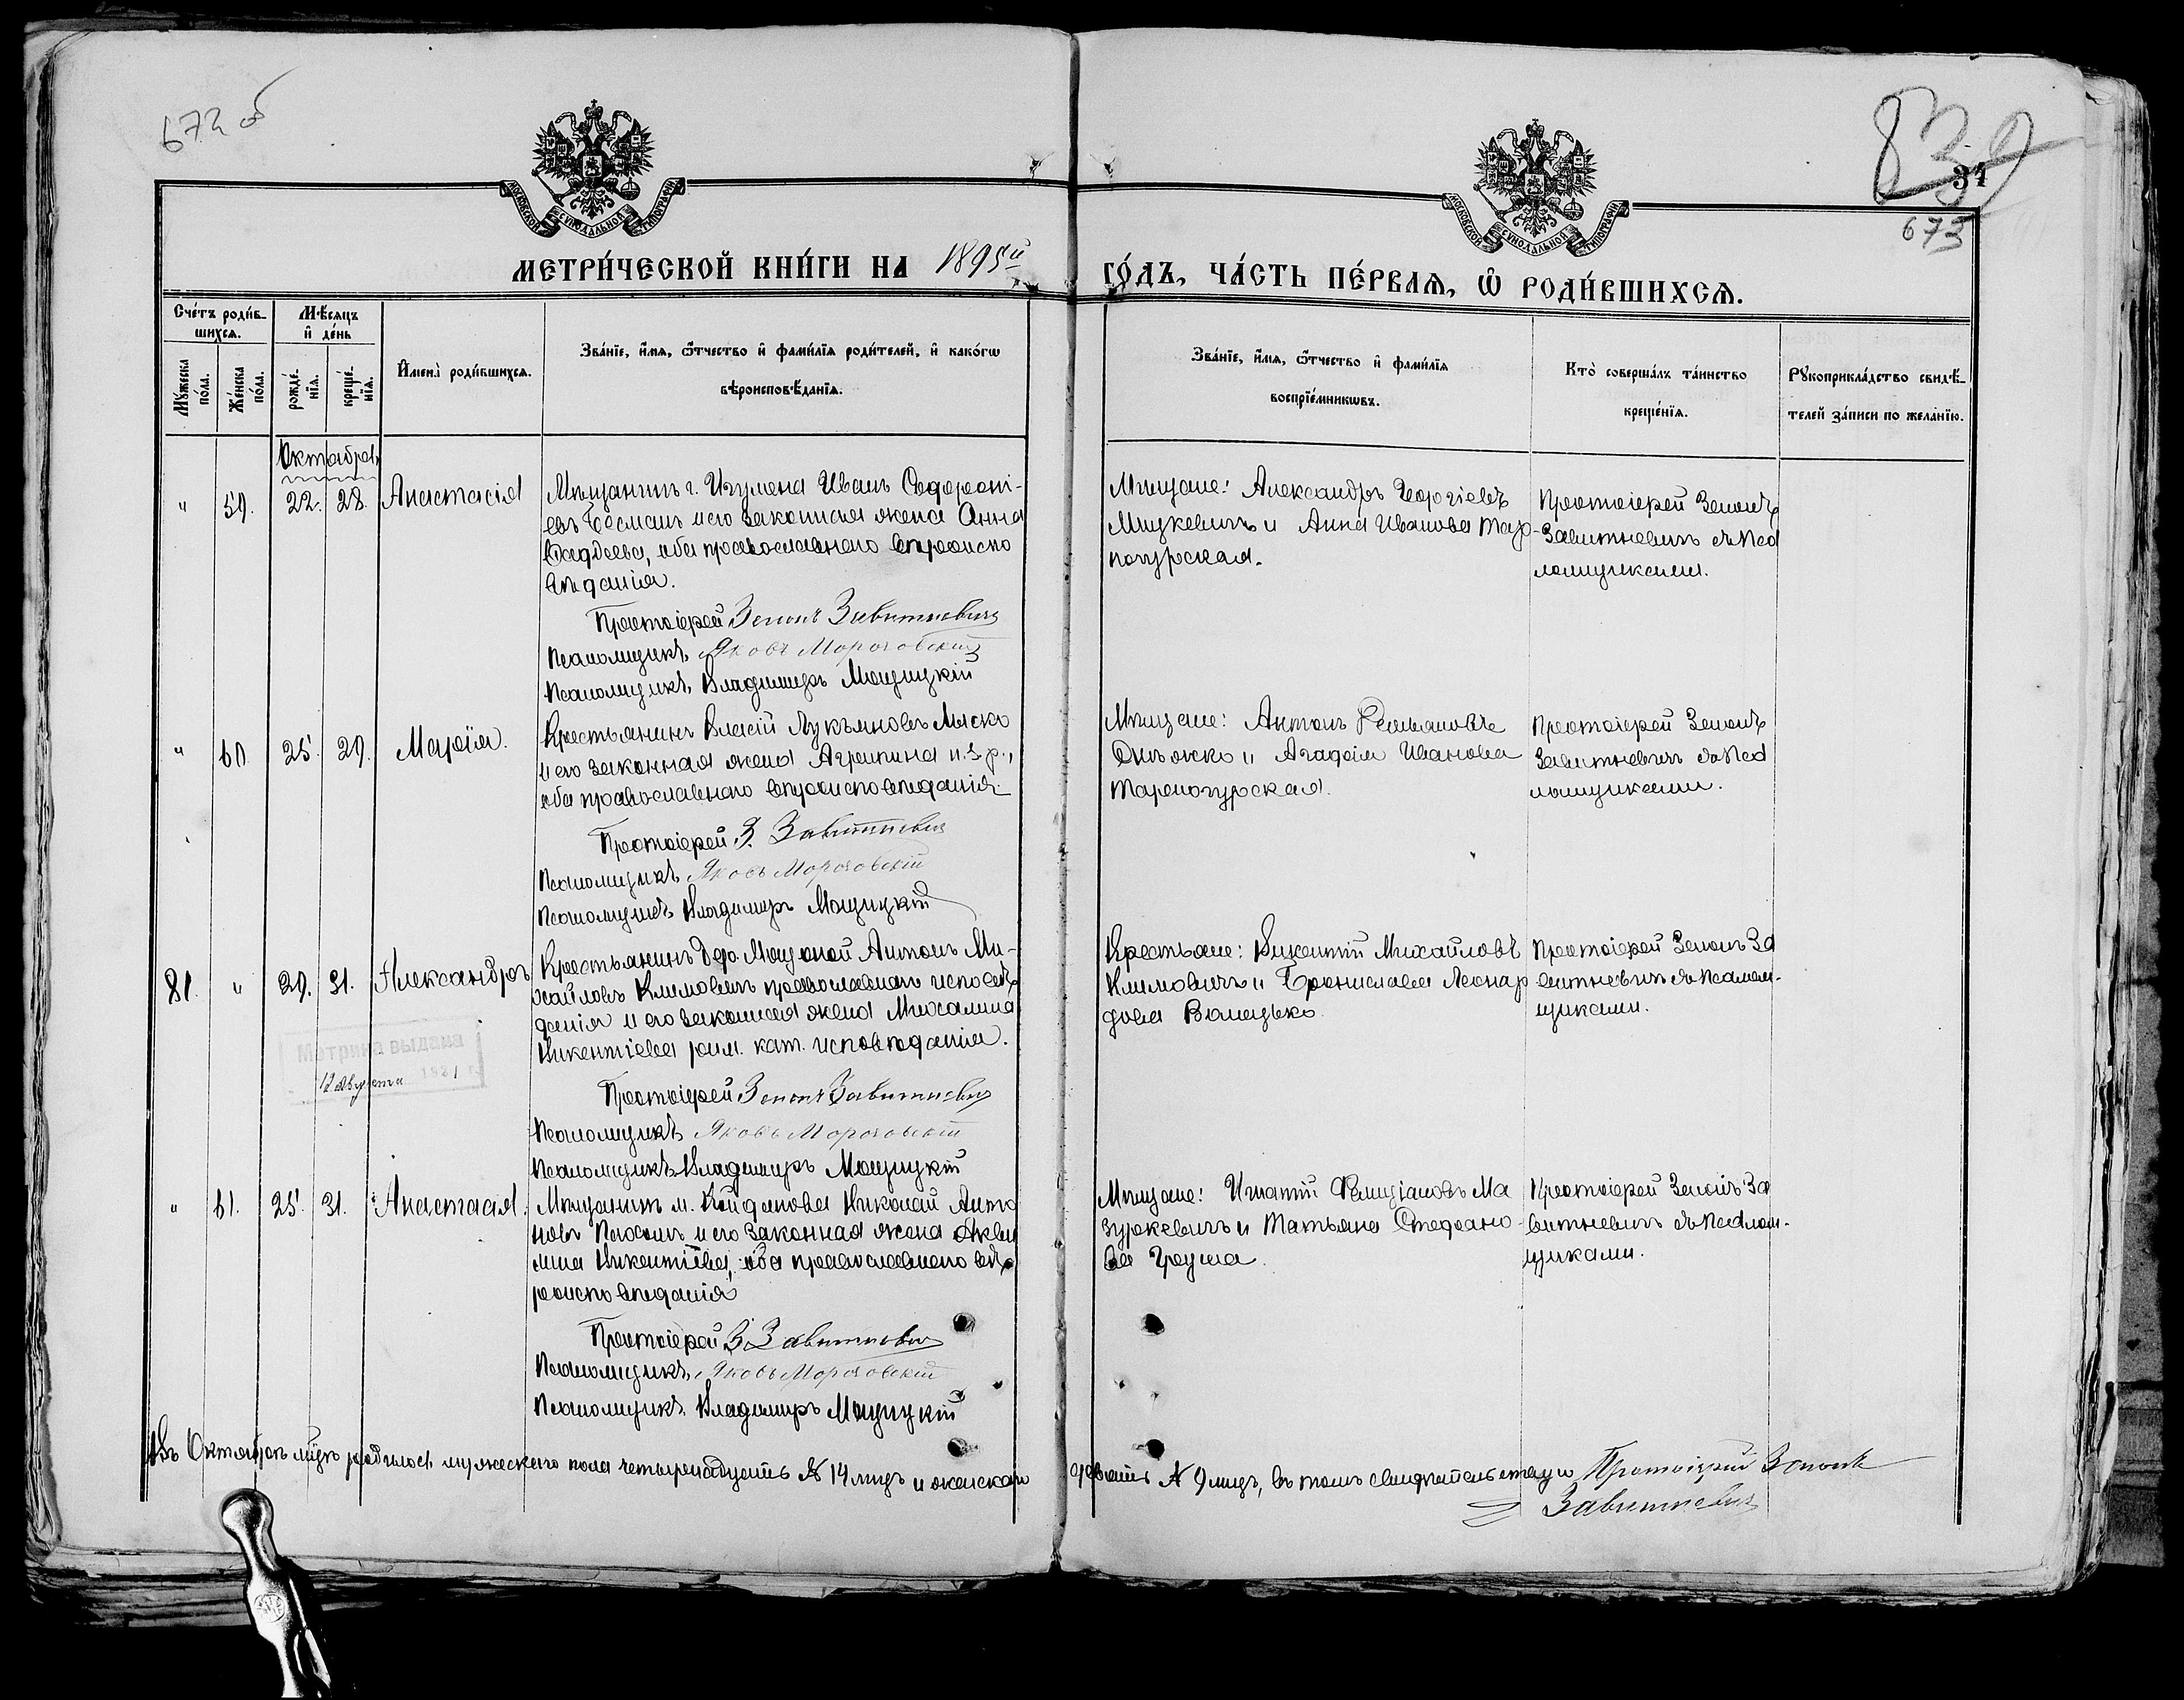 672 об
839
34
673
МОСКОВСКОЙ СУНОДАЛЬНОЙ ТИПОГРАФИИ
МОСКОВСКОЙ СУНОДАЛЬНОЙ ТИПОГРАФИИ
МЕТРИ́ЧЕСКОЙ КНИ́ГИ НА 1895й
ГО́ДЪ, ЧА́СТЬ ПЕ́РВАѦ, Ѡ҆ РОДИ́ВШИХСѦ.
Сче́тъ роди́в-
шихсѧ.
Мꙋ́жеска по́ла.
Же́нска по́ла.
Мѣ́сѧцъ
и҆ де́нь
рожде́-
нїѧ.
креще́-
нїѧ.
И҆мена̀ роди́вшихсѧ.
Зва́нїе, и҆́мѧ, ѻ҆́тчество и҆ фами́лїѧ роди́телей, и҆ како́гѡ
вѣроисповѣ́данїѧ.
Зва́нїе, и҆́мѧ, ѻ҆́тчество и҆ фами́лїѧ
воспрїе́мникѡвъ.
Кто̀ соверша́лъ та́инство
креще́нїѧ.
Рꙋкоприкла́дство свидѣ́-
телей за́писи по жела́нїю.
Октября
" 59. 22. 28. Анастасія
Мѣщанинъ г. Игумена Иванъ
и его законная жена Анна
оба православнаго вѣроиспо
вѣданія.
Протоіерей Зенонъ Завитневичъ
Псаломщикъ Яковъ Морозовскій
Псаломщикъ Владимиръ Мощицкій
Мѣщане: Александръ Георгіевъ
Мицкевичъ и Анна Иванова Тар-
ногурская.
Протоіерей Зенонъ
Завитневичъ съ Пса
ломщиками.
" 60. 25. 29. Марія.
Крестьянинъ Власій Лукьяновъ Мяско
и его законная жена Агрипина
оба православнаго вѣроисповѣданія.
Протоіерей З. Завитневичъ
Псаломщикъ Яковъ Морозовскій
Псаломщикъ Владимиръ Мощицкій
Мѣщане: Антонъ
и Агафія Иванова
Тарногурская.
Протоіерей Зенонъ
Завитневичъ съ Пса
ломщиками.
81. " 29. 31. Александръ
Крестьянинъ дер. Мощоной Антонъ Ми-
хайловъ Климовичъ православнаго исповѣ
данія и его законная жена Михалина
Викентіева рим. кат. исповѣданія.
Метрика выдана
12 августа 1921 г.
Протоіерей Зенонъ Завитневичъ
Псаломщикъ Яковъ Морозовскій
Псаломщикъ Владимиръ Мощицкій
Крестьяне: Викентій Михайловъ
Климовичъ и Брониславa Леонар
дова Валецько.
Протоіерей Зенонъ За
витневичъ съ Псалом-
щиками.
" 61. 25. 31. Анастасія.
Мѣщанинъ м. Койданова Николай Анто
новъ и его законная жена Акви
лина Викентіева, оба православнаго вѣ
роисповѣданія
Протоіерей З Завитневичъ
Псаломщикъ Яковъ Морозовскій
Псаломщикъ Владимиръ Мощицкій
Мѣщане: Игнатій Фелиціановъ Ма
зуркевичъ и Татьяна Стефано-
ва Груша.
Протоіерей Зенонъ За
витневичъ съ Псалом-
щиками.
Въ Октябрѣ мцѣ родилось мужескаго пола четырнадцать № 14 лицъ и женскаго девять № 9 лицъ, въ томъ свидѣтельствую Протоіерей Зенонъ
Завитневичъ